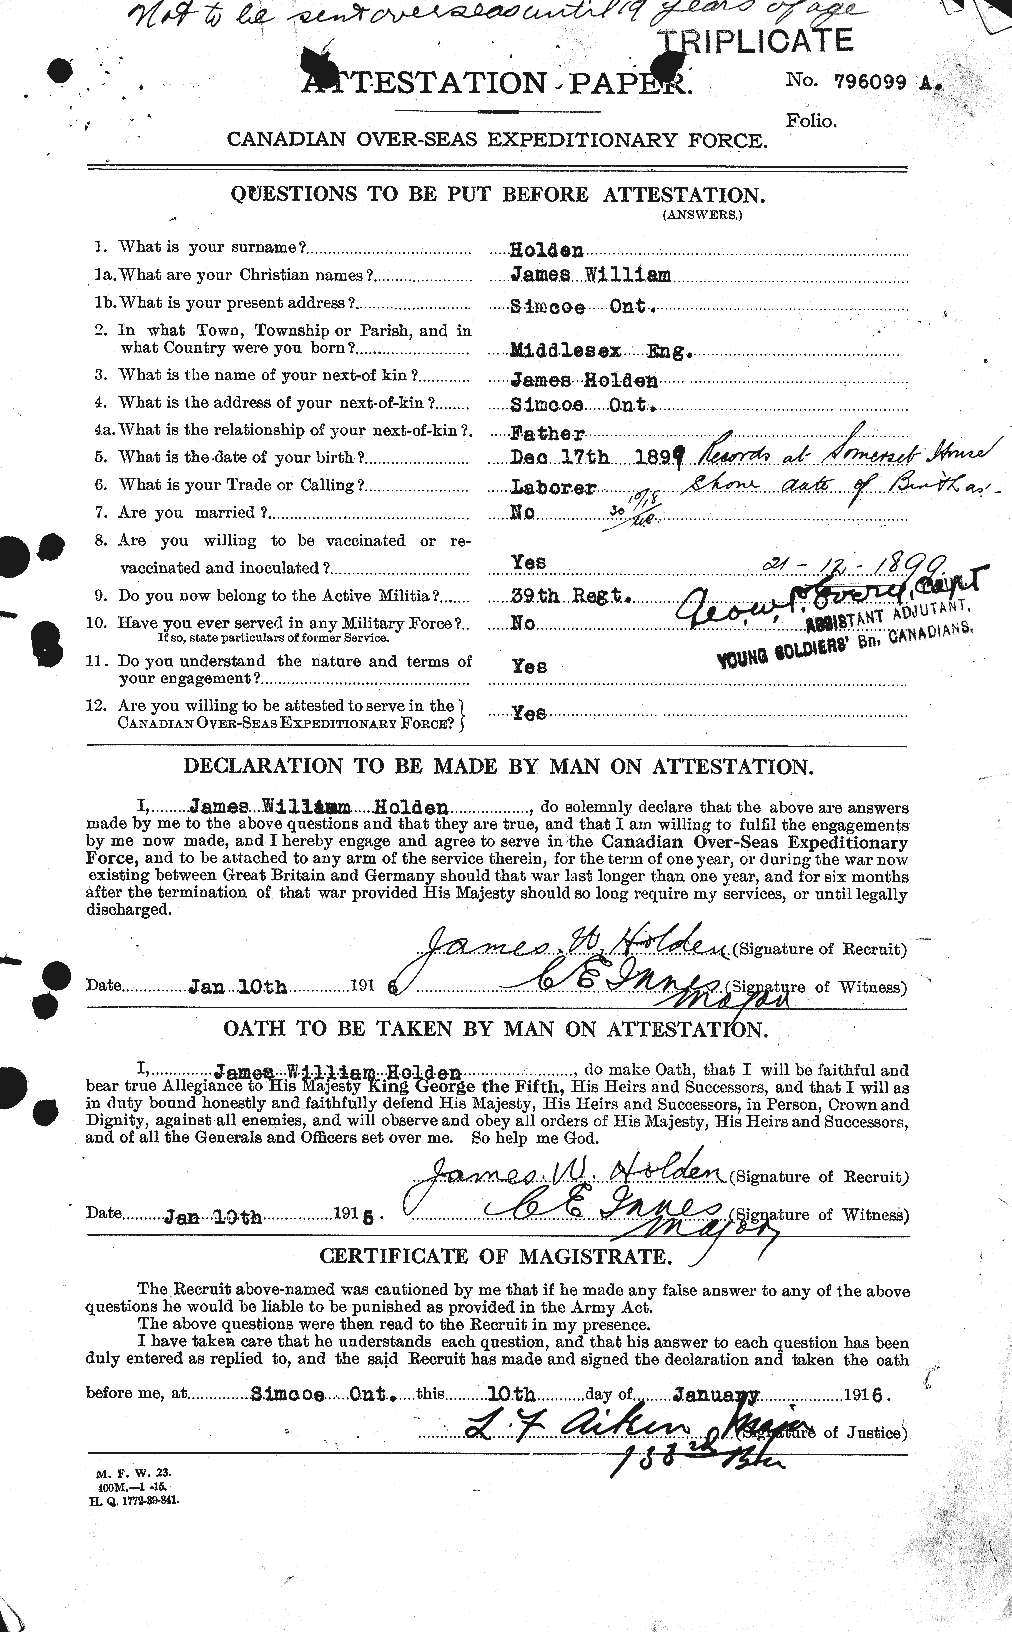 Not to be sent overseas until 19 years of age
TRIPLICATE
ATTESTATION PAPER.
No. 796099 A.
Folio.
CANADIAN OVER-SEAS EXPEDITIONARY FORCE.
QUESTIONS TO BE PUT BEFORE ATTESTATION.
(ANSWERS.)
1. What is your surname? Holden
1a. What are your Christian names? James William
1b. What is your present address? Simcoe Ont.
2. In what Town, Township or Parish, and in
what Country were you born? Middlesex Eng.
3. What is the name of your next-of kin? James Holden
4. What is the address of your next-of-kin? Simcoe Ont.
4a. What is the relationship of your next-of-kin? Father
5. What is the date of your birth? Dec 17th 1899 Records at Somerset House
6. What is your Trade or Calling? Laborer shone date of Birth as -
7. Are you married? No
8. Are you willing to be vaccinated or re-
vaccinated and inoculated? Yes 21 - 12 - 1899.
9. Do you now belong to the Active Militia? 39th Regt. Capt
ASSISTANT ADJUTANT,
10. Have you ever served in any Military Force? No
If so, state particulars of former Service.
YOUNG SOLDIERS' Bn, CANADIANS.
11. Do you understand the nature and terms of
your engagement? Yes
12. Are you willing to be attested to serve in the
CANADIAN OVER-SEAS EXPEDITIONARY FORCE? Yes
DECLARATION TO BE MADE BY MAN ON ATTESTATION.
I, James William Holden, do solemnly declare that the above are answers
made by me to the above questions and that they are true, and that I am willing to fulfil the engagements
by me now made, and I hereby engage and agree to serve in the Canadian Over-Seas Expeditionary
Force, and to be attached to any arm of the service therein, for the term of one year, or during the war now
existing between Great Britain and Germany should that war last longer than one year, and for six months
after the termination of that war provided His Majesty should so long require my services, or until legally
discharged.
James. W. Holden (Signature of Recruit)
Date Jan 10th 1916 C E Innes (Signature of Witness)
Major
OATH TO BE TAKEN BY MAN ON ATTESTATION.
I, James William Holden, do make Oath, that I will be faithful and
bear true Allegiance to His Majesty King George the Fifth, His Heirs and Successors, and that I will as
in duty bound honestly and faithfully defend His Majesty, His Heirs and Successors, in Person, Crown and
Dignity, against all enemies, and will observe and obey all orders of His Majesty, His Heirs and Successors,
and of all the Generals and Officers set over me. So help me God.
James. W. Holden (Signature of Recruit)
Date Jan 10th 1916. C E Innes (Signature of Witness)
Major
CERTIFICATE OF MAGISTRATE.
The Recruit above-named was cautioned by me that if he made any false answer to any of the above
questions he would be liable to be punished as provided in the Army Act.
The above questions were then read to the Recruit in my presence.
I have taken care that he understands each question, and that his answer to each question has been
duly entered as replied to, and the said Recruit has made and signed the declaration and taken the oath
before me, at Simcoe Ont. this 10th day of January 1916.
L. F Aiken Major (Signature of Justice)
133rd Bn
M. F. W. 23.
400M.—1-15.
H. Q. 1772-39-841.